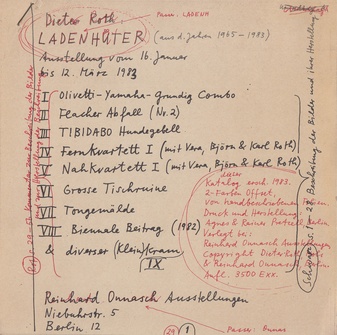 Dieter Roth.
Passe: LADENH
LADENHÜTER (aus d. Jahren 1965–1983)
Ausstellung vom 16. Januar
bis 12. März 1983
I Olivetti-Yamaha-Grundig Combo
II Flacher Abfall (Nr. 2)
III TIBIDABO Hundegebell
IV Fernkvartett I (mit Vera, Björn & Karl Roth)
V Nahkvartett I (mit Vera, Björn & Karl Roth)
VI Grosse Tischruine
VII Tongemälde
VIII Biennale Beitrag (1982)
& diverser (Klein)kram
IX
Katalog ersch. 1983.
2-Farben Offset,
von handbeschriebenen
Druck und Herstellung
Agnes & Rainer Pretzell, Berlin
Verlegt bei:
Reinhard Onnasch Ausstellungen
Copyright Dieter Roth
& Reinhard Onnasch
Aufl. 3500 Exx.
Reinhard Onnasch Ausstellungen
Niebuhrstr. 5
Berlin 12
29 1
Passe: